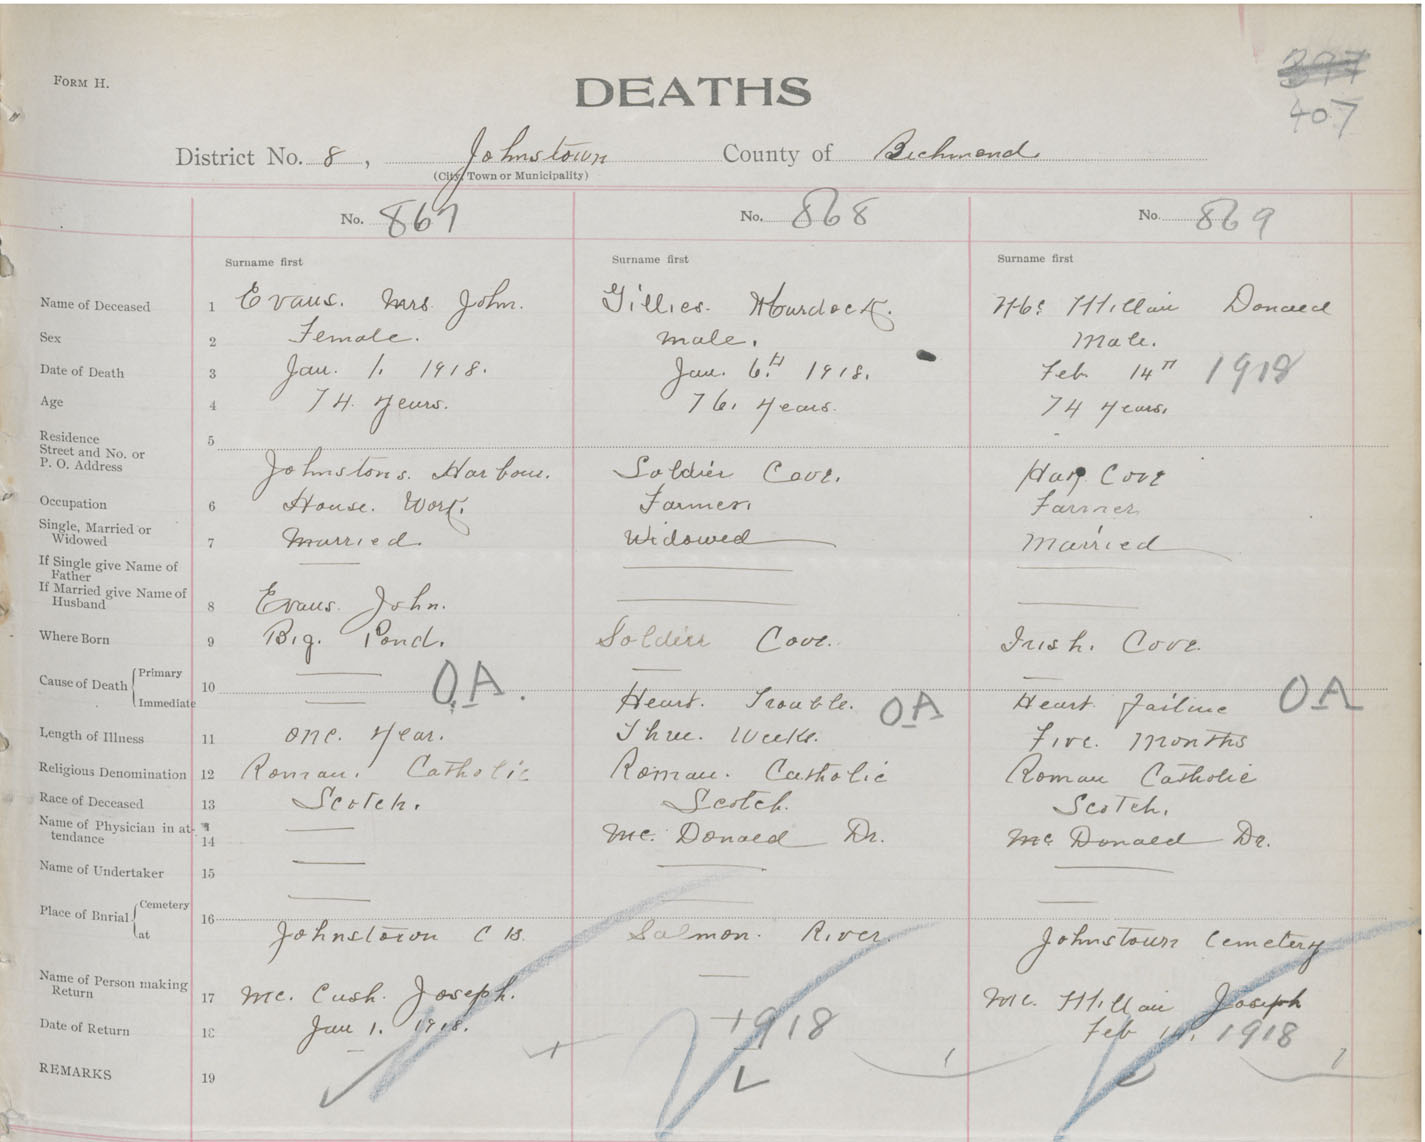 FORM H.
DEATHS
397
407
District No. 8, Johnstown County of Richmond
(City, Town or Municipality)
No. 867 No. 868 No. 869
Surname first Surname first Surname first
Name of Deceased 1 Evans. Mrs. John. Gillies. Murdock. Mc Millan Donald
Sex 2 Female. male. Male.
Date of Death 3 Jan. 1. 1918. Jan. 6th. 1918. Feb 14th 1918
Age 4 74 years. 76. years. 74 years.
Residence
Street and No. or 5
P. O. Address Johnstons. Harbour. Soldier Cove. Hay Cove
Occupation 6 House. Work. Farmer. Farmer
Single, Married or
Widowed 7 Married. Widowed Married
If Single give Name of
Father
If Married give Name of
Husband 8 Evans. John.
Where Born 9 Big. Pond. Soldier Cove. Irish. Cove.
Cause of Death Primary 10 O.A.
Immediate Heart. Trouble. OA Heart failure OA
Length of Illness 11 one. year. Three. Weeks. Five. Months
Religious Denomination 12 Roman. Catholic Roman. Catholic Roman Catholic
Race of Deceased 13 Scotch. Scotch. Scotch.
Name of Physician in at-
tendance 14 Mc. Donald Dr. Mc Donald Dr.
Name of Undertaker 15
Place of Burial Cemetery 16
at Johnstown C B. Salmon. River. Johnstown Cemetery
Name of Person making
Return 17 Mc. Cush. Joseph. Mc. Millan Joseph
Date of Return 18 Jan 1. 1918. 1918 Feb 1918
REMARKS 19